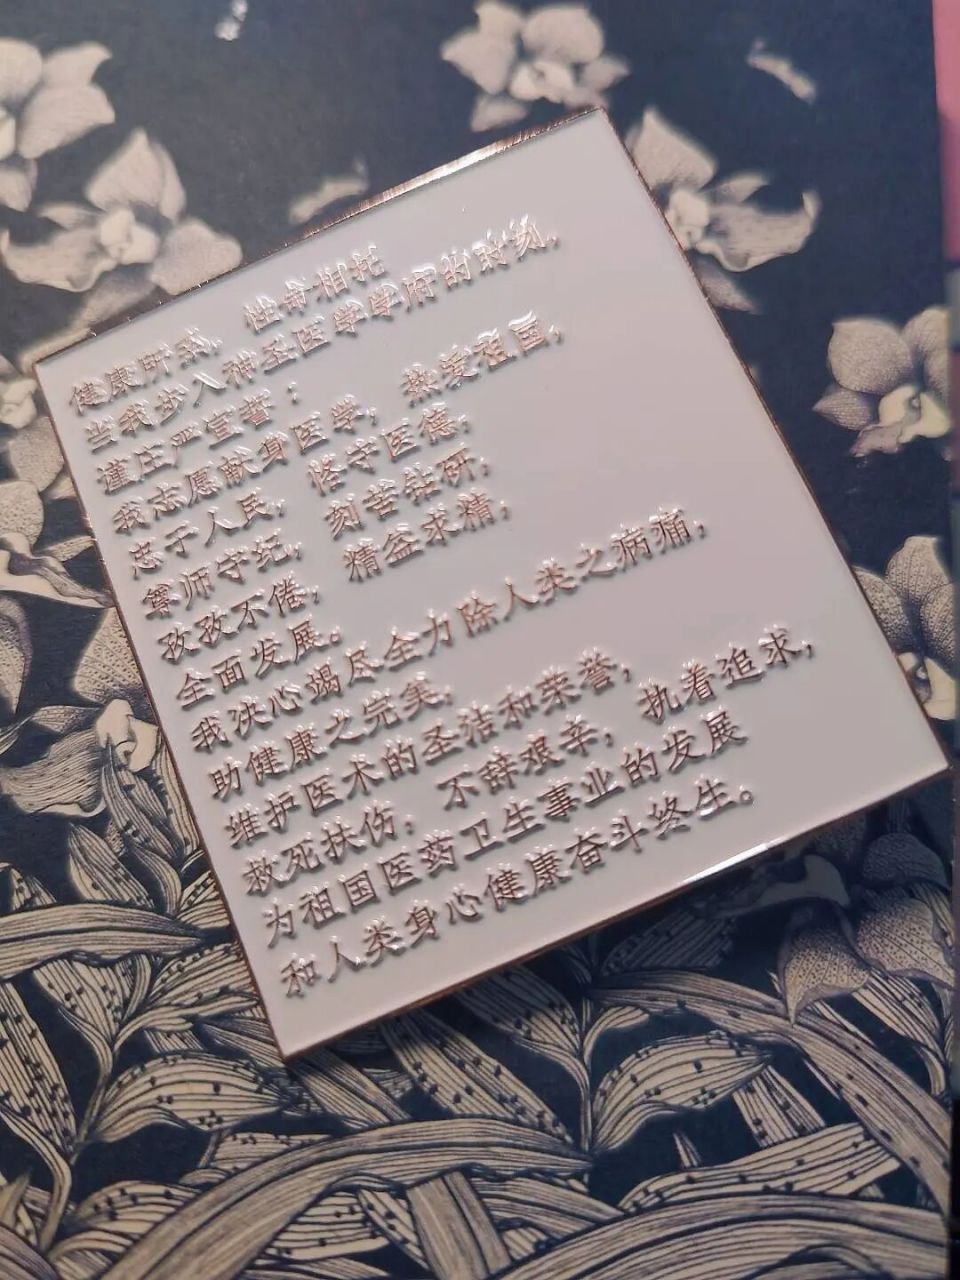 健康所系，性命相托
当我步入神圣医学学府的时刻，
谨庄严宣誓：
我志愿献身医学，热爱祖国，
忠于人民，恪守医德，
尊师守纪，刻苦钻研，
孜孜不倦，精益求精，
全面发展。
我决心竭尽全力除人类之病痛，
助健康之完美，
维护医术的圣洁和荣誉，
救死扶伤，不辞艰辛，执着追求，
为祖国医药卫生事业的发展
和人类身心健康奋斗终生。